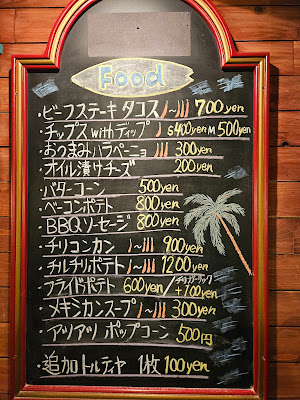 Food
・ビーフステーキ タコス 〜 700yen
・チップス withディップ S400yen M500yen
・おつまみハラペーニョ 300yen
・オイル漬けチーズ 200yen
・バターコーン 500yen
・ベーコンポテト 800yen
・BBQソーセージ 800yen
・チリコンカン 〜 900yen
・チルチリポテト 〜 1200yen
・フライドポテト 600yen /チリorガーリック +100yen
・メキシカンスープ 〜 300yen
・アツアツ ポップコーン 500円
・追加トルティヤ 1枚 100yen